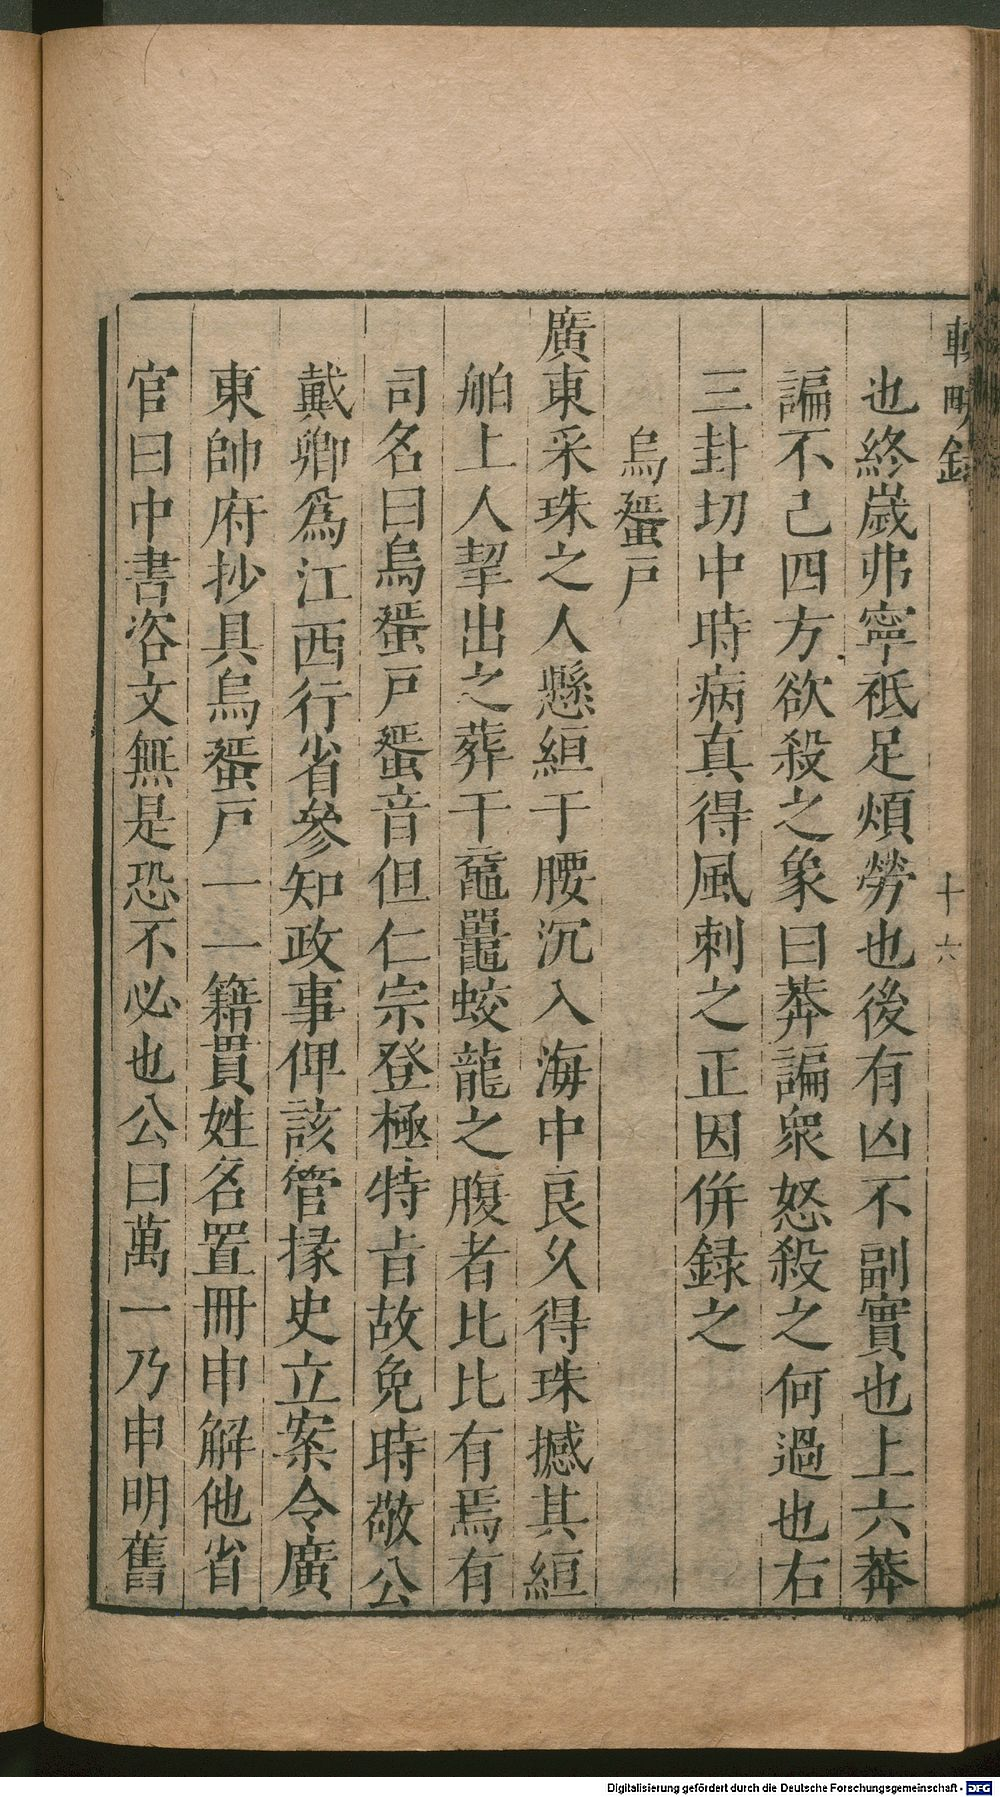 輟畊錄
十六
也終歲弗寧祗足煩勞也後有凶不副實也上六莾
諞不已四方欲殺之象曰莾諞衆怒殺之何過也右
三封切中時病真得風刺之正因併録之
烏蜑戸
廣東采珠之人懸絙于腰沉入海中良乆得珠撼其絙
舶上人挈出之葬于黿鼉蛟龍之腹者比比有焉有
司名曰烏蜑戸蜑音但仁宗登極特旨故免時敬公
戴卿爲江西行省參知政事俾該管掾史立案令廣
東帥府抄具烏蜑戸一一籍貫姓名置冊申解他省
官曰中書咨文無是恐不必也公曰萬一乃申明舊
Digitalisierung gefördert durch die Deutsche Forschungsgemeinschaft - DFG